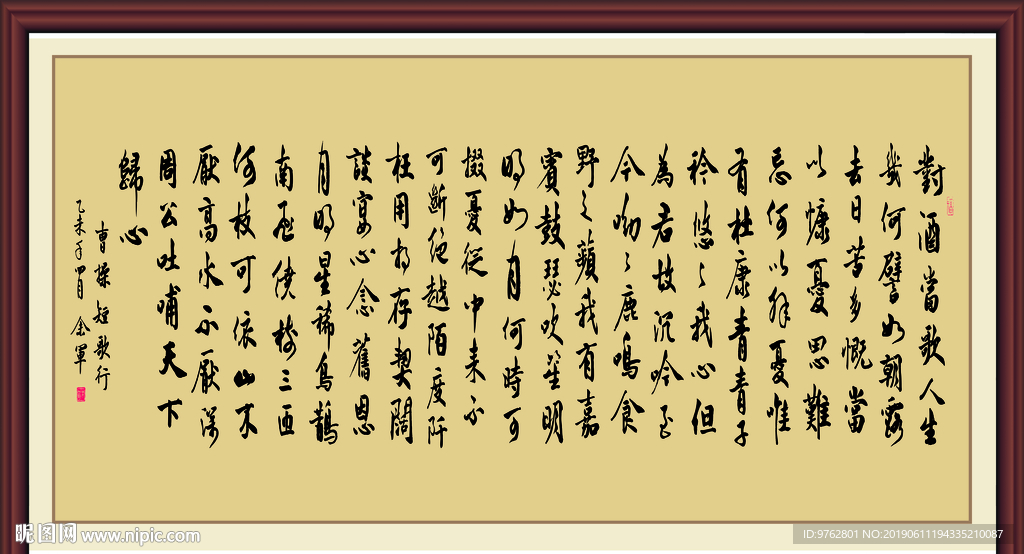 對酒當歌人生
幾何譬如朝露
去日苦多慨當
以慷憂思難
忘何以解憂惟
有杜康青青子
衿悠々我心但
為君故沉吟至
今呦々鹿鳴食
野之蘋我有嘉
賓鼓瑟吹笙明
明如月何時可
掇憂從中來不
可斷絕越陌度阡
枉用相存契闊
談宴心念舊恩
月明星稀烏鵲
南飛繞樹三匝
何枝可依山不
厭高水不厭深
周公吐哺天下
歸心
曹操短歌行
乙未年 余軍
昵图网 www.nipic.com
ID:9762801 NO:20190611194335210087